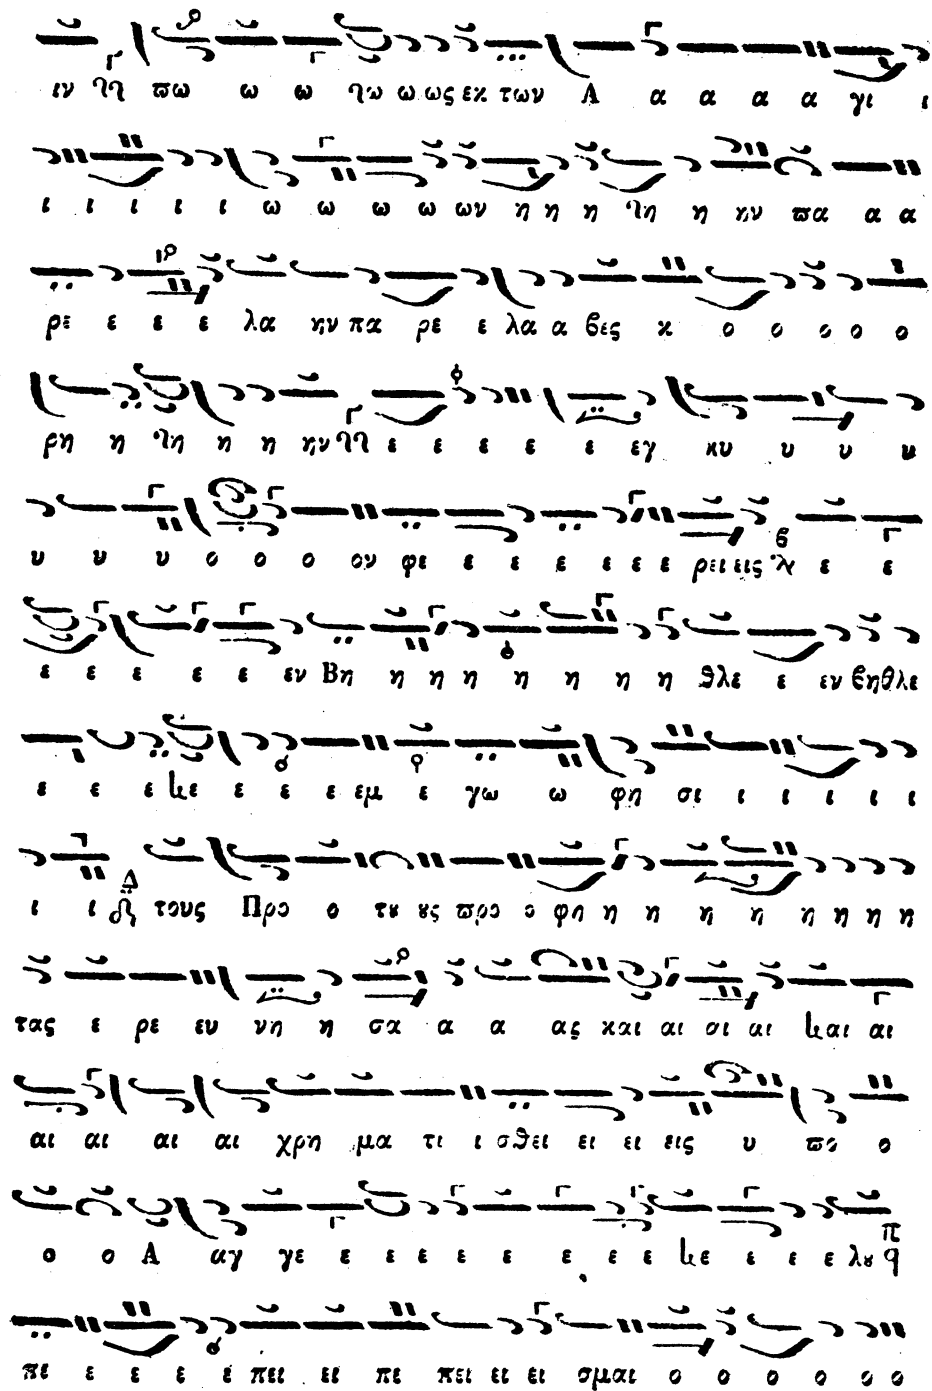 ιν ϖω ω ω ϟω ω ως εκ των Α α α α α γι ι
ι ι ι ι ι ω ω ω ω ων η η η ϟη η ην ϖα α α
ρε ε ε ε λα ην πα ρε ε λα α βες κ ο ο ο ο ο
ρη η ϟη η η ην ε ε ε ε ε εγ κυ υ υ υ
υ υ υ ο ο ο ον φε ε ε ε ε ε ε ρει εις ε ε
ε ε ε ε ε εν Βη η η η η η η η θλε ε εν βηθλε
ε ε ε ε ε ε ε εμ ε γω ω φη σι ι ι ι ι ι
ι ι τους Προ ο τȣ ȣς ϖρο ο φη η η η η η η η
τας ε ρε ευ νη η σα α α ας και αι αι αι αι
αι αι αι αι χρη μα τι ι σθει ει ει εις υ ϖο ο
ο ο Α αγ γε ε ε ε ε ε ε ε ε ε ε ε λȣ
πε ε ε ε ε πει ει πε πει ει ει σμαι ο ο ο ο ο ο